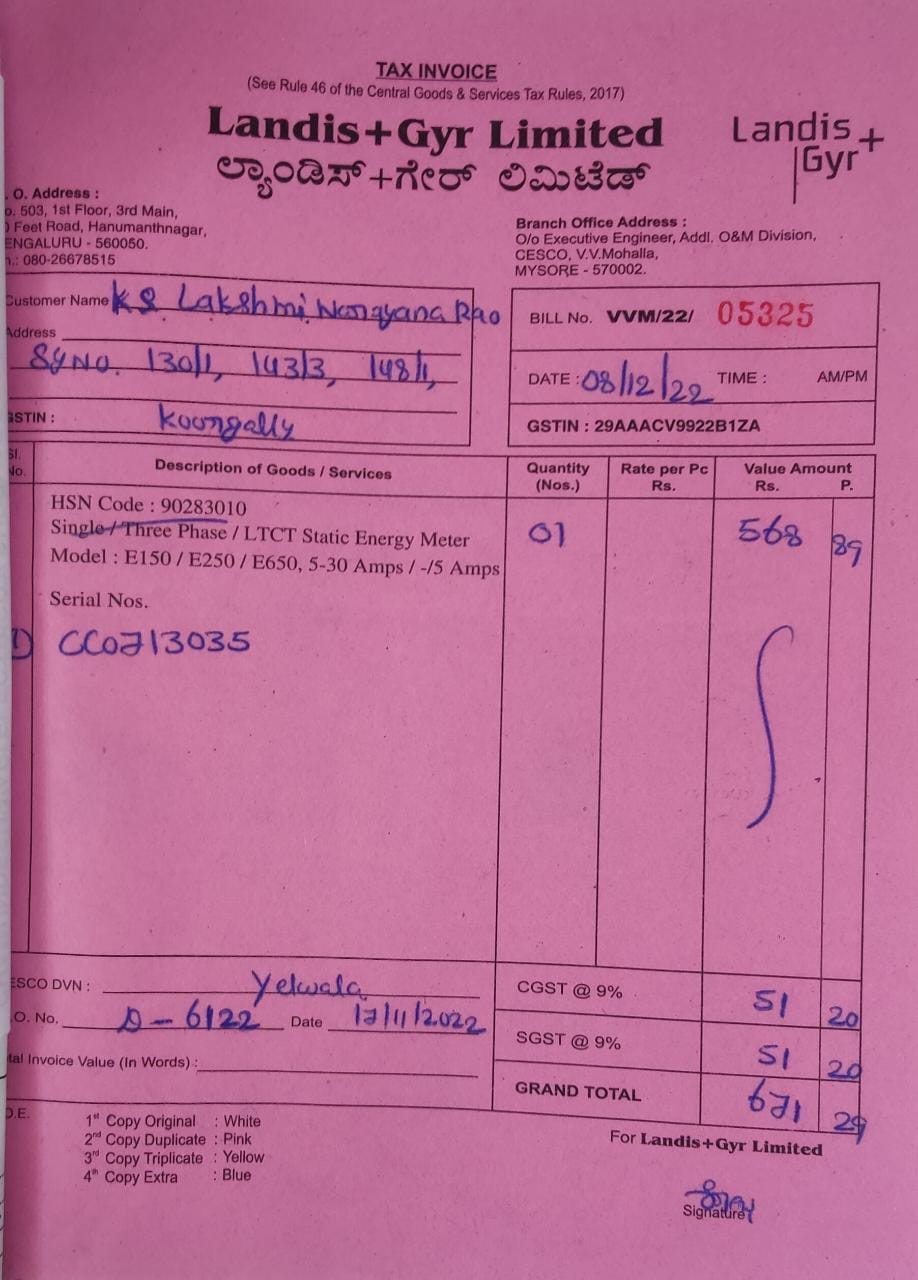 TAX INVOICE
(See Rule 46 of the Central Goods & Services Tax Rules, 2017)
Landis+Gyr Limited
ಲ್ಯಾಂಡಿಸ್+ಗೇರ್ ಲಿಮಿಟೆಡ್
Landis
Gyr+
. O. Address :
o. 503, 1st Floor, 3rd Main,
Feet Road, Hanumanthnagar,
ENGALURU - 560050.
.: 080-26678515
Branch Office Address :
O/o Executive Engineer, Addl. O&M Division,
CESCO, V.V.Mohalla,
MYSORE - 570002.
Customer Name K S Lakshmi Narayana Rao
Address
SY NO. 130/1, 143/3, 148/1,
GSTIN : Koorgally
BILL No. VVM/22/ 05325
DATE : 08/12/22 TIME : AM/PM
GSTIN : 29AAACV9922B1ZA
Sl. No. Description of Goods / Services Quantity (Nos.) Rate per Pc Rs. Value Amount Rs. P.
HSN Code : 90283010
Single / Three Phase / LTCT Static Energy Meter 01 568 89
Model : E150 / E250 / E650, 5-30 Amps / -/5 Amps
Serial Nos.
1) CC0713035
ESCO DVN : Yelwala
.O. No. D - 6122 Date 17/11/2022
tal Invoice Value (In Words) :
CGST @ 9% 51 20
SGST @ 9% 51 20
GRAND TOTAL 671 29
O.E.
1st Copy Original : White
2nd Copy Duplicate : Pink
3rd Copy Triplicate : Yellow
4th Copy Extra : Blue
For Landis+Gyr Limited
Signature